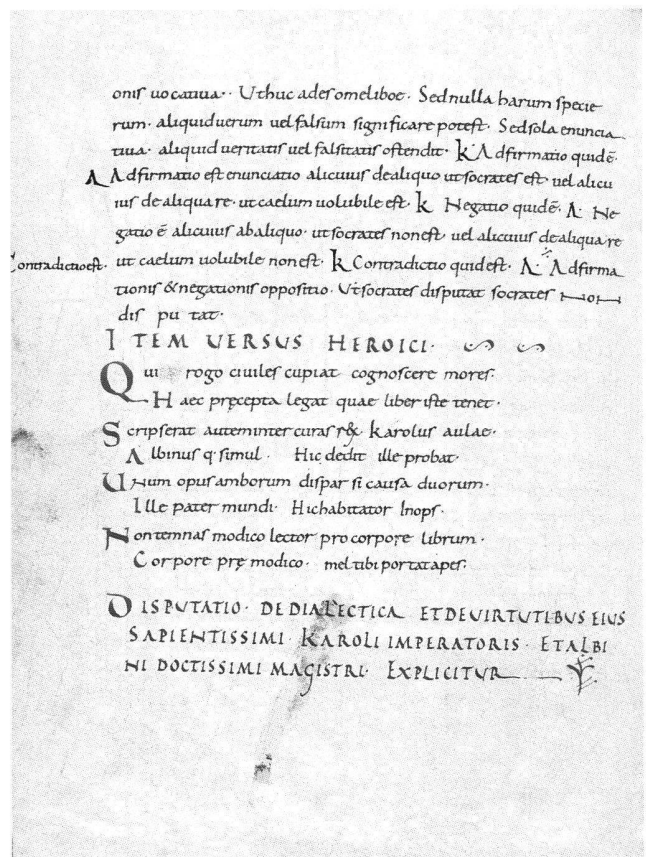 onis uocatiua· Ut huc ades o meliboe· Sed nulla harum specie
rum· aliquid uerum uel falsum significare potest· Sed sola enuncia
tiua· aliquid ueritatis uel falsitatis ostendit· K Adfirmatio quidē·
A Adfirmatio est enunciatio alicuius de aliquo ut socrates est· uel alicu
ius de aliqua re· ut caelum uolubile est· K Negatio quidē· A· Ne
gatio ē alicuius ab aliquo· ut socrates non est· uel alicuius de aliqua re
Contradictio est· ut caelum uolubile non est· K Contradictio quid est· A· Adfirma
tionis & negationis oppositio· Ut socrates disputat socrates non
dis pu tat·
ITEM UERSUS HEROICI·
Qui rogo ciuiles cupiat cognoscere mores·
Haec pręcepta legat quae liber iste tenet·
Scripserat autem inter curas rex karolus aulae·
Albinus q· simul· Hic dedit ille probat·
Unum opus amborum dispar si causa duorum·
Ille pater mundi· Hic habitator Inops·
Non temnas modico lector pro corpore librum·
Corpore prę modico· mel tibi portat apes·
DISPUTATIO· DE DIALECTICA ET DE UIRTUTIBUS EIUS
SAPIENTISSIMI· KAROLI IMPERATORIS· ET ALBI
NI DOCTISSIMI MAGISTRI· EXPLICITUR